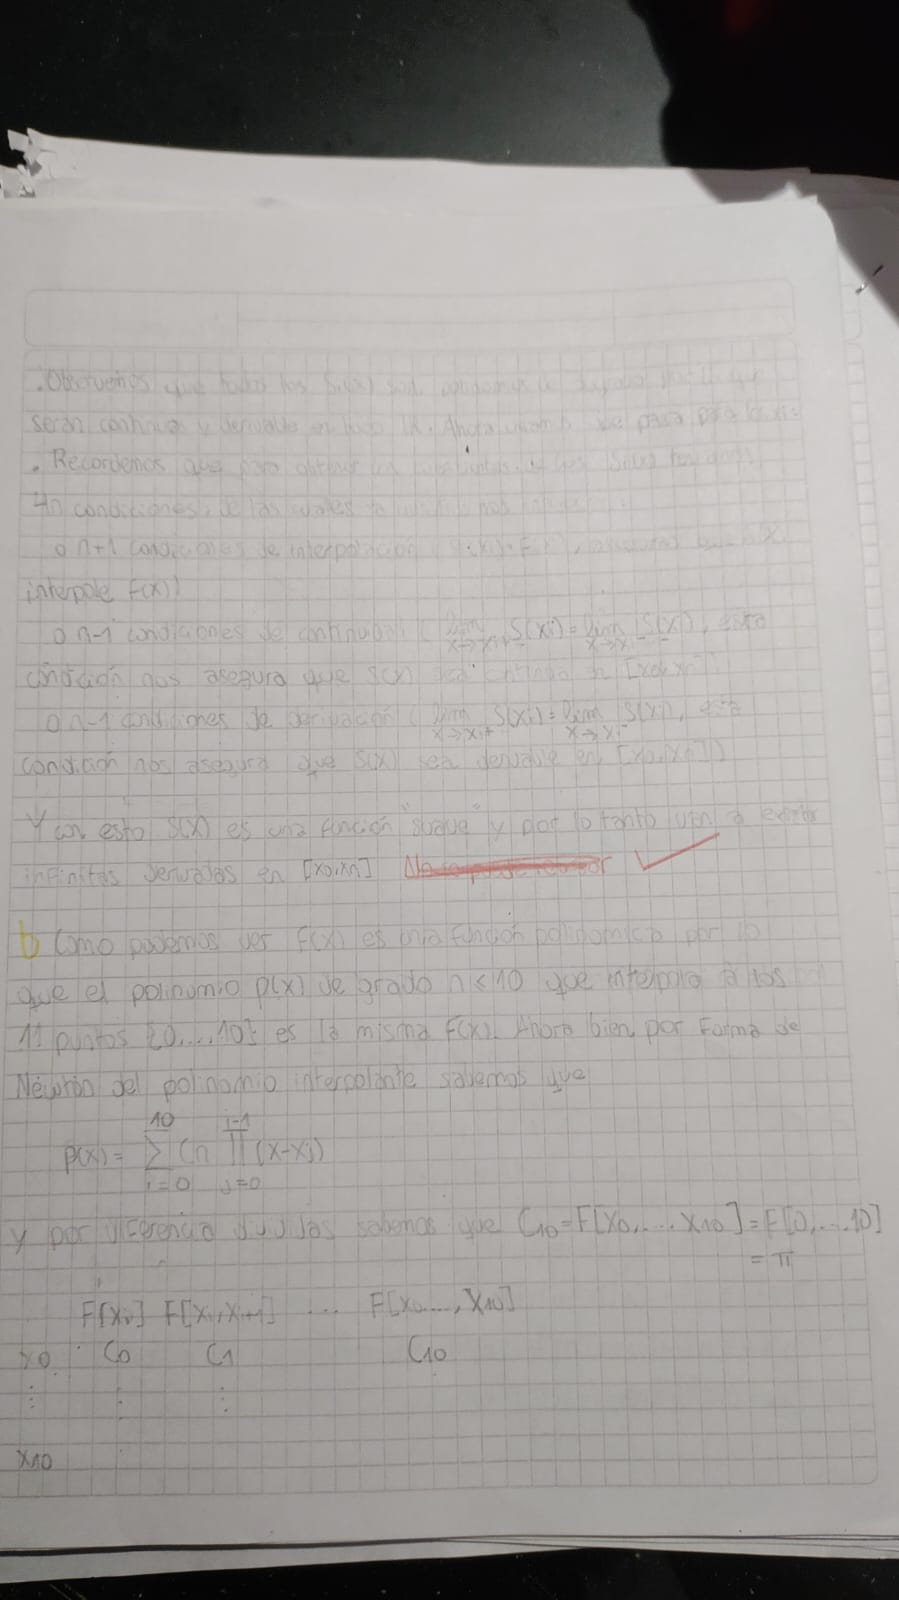 . Observemos que todos los
serán continua y derivable en todo Ahora para
. Recordemos que para obtener
4n condiciones, de las cuales
o n+1 condiciones de interpolación
interpole F(x))
o n-1 condiciones de continuidad ( lim x→xi+ S(xi) = lim x→xi- S(x), esta
condición nos asegura que S(x) sea continua en [x0, xn])
o n-1 condiciones de derivación ( lim x→xi+ S(xi) = lim x→xi- S(x), esta
condición nos asegura que S(x) sea derivable en [x0, xn])
Y con esto S(x) es una función "suave" y por lo tanto van a existir
infinitas derivadas en [x0, xn]
b Como podemos ver F(x) es una función polinomica por lo
que el polinomio p(x) de grado n ≤ 10 que interpola a los
11 puntos {0,...,10} es la misma F(x). Ahora bien por Forma de
Newton del polinomio interpolante sabemos que
p(x) = 10 Σ i=0 Cn i-1 Π j=0 (x-xj)
y por diferencia divididas sabemos que C10 = F[x0,..., x10] = F[0,...,10]
= π
F[xi] F[xi, xi+1] ... F[x0,..., x10]
x0 C0 C1 C10
⋮ ⋮ ⋮
x10